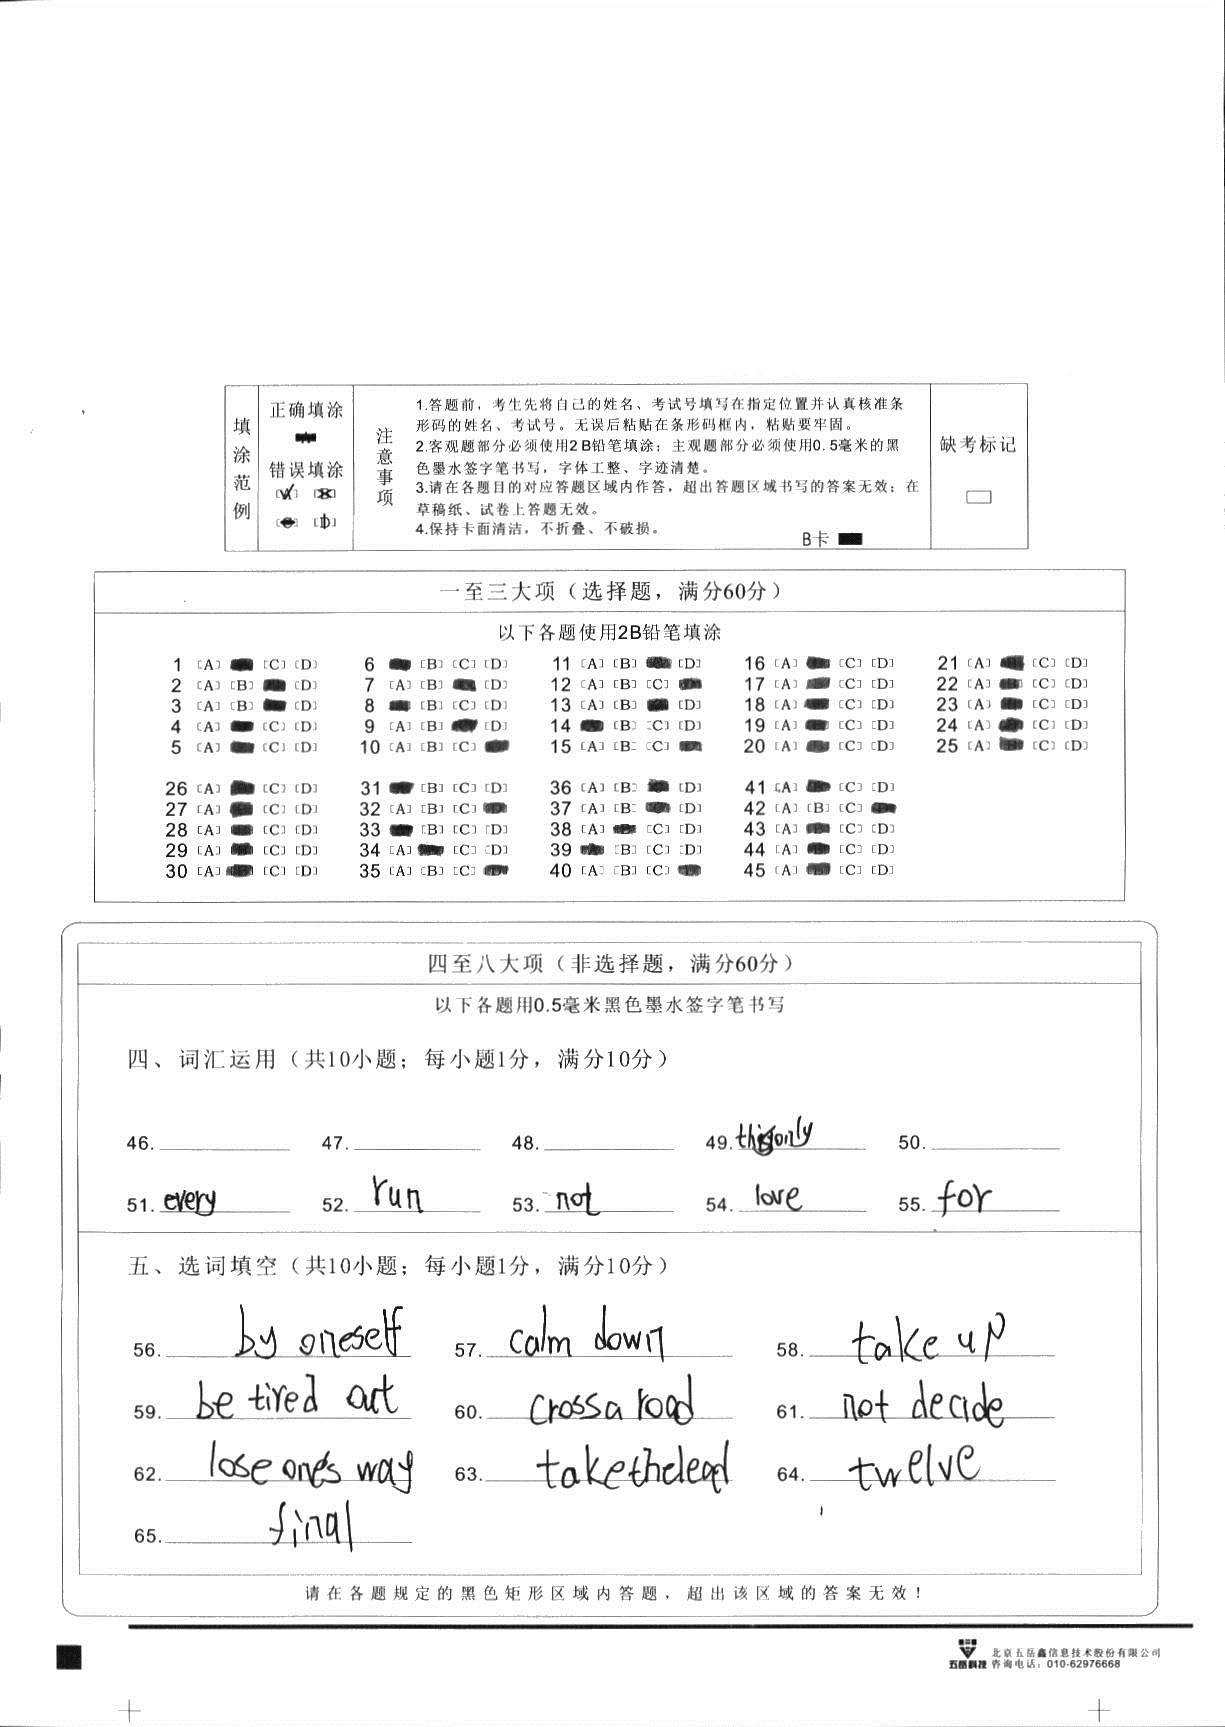 填涂范例
正确填涂
错误填涂
[A] [B]
[C] [D]
注意事项
1.答题前，考生先将自己的姓名、考试号填写在指定位置并认真核准条
形码的姓名、考试号。无误后粘贴在条形码框内，粘贴要牢固。
2.客观题部分必须使用2B铅笔填涂；主观题部分必须使用0.5毫米的黑
色墨水签字笔书写，字体工整、字迹清楚。
3.请在各题目的对应答题区域内作答，超出答题区域书写的答案无效；在
草稿纸、试卷上答题无效。
4.保持卡面清洁，不折叠、不破损。
B卡
缺考标记
一至三大项（选择题，满分60分）
以下各题使用2B铅笔填涂
1 [A] [C] [D] 6 [B] [C] [D] 11 [A] [B] [D] 16 [A] [C] [D] 21 [A] [C] [D]
2 [A] [B] [D] 7 [A] [B] [D] 12 [A] [B] [C] 17 [A] [C] [D] 22 [A] [C] [D]
3 [A] [B] [D] 8 [B] [C] [D] 13 [A] [B] [D] 18 [A] [C] [D] 23 [A] [C] [D]
4 [A] [C] [D] 9 [A] [B] [D] 14 [B] [C] [D] 19 [A] [C] [D] 24 [A] [C] [D]
5 [A] [C] [D] 10 [A] [B] [C] 15 [A] [B] [C] 20 [A] [C] [D] 25 [A] [C] [D]
26 [A] [C] [D] 31 [B] [C] [D] 36 [A] [B] [D] 41 [A] [C] [D]
27 [A] [C] [D] 32 [A] [B] [C] 37 [A] [B] [D] 42 [A] [B] [C]
28 [A] [C] [D] 33 [B] [C] [D] 38 [A] [C] [D] 43 [A] [C] [D]
29 [A] [C] [D] 34 [A] [C] [D] 39 [B] [C] [D] 44 [A] [C] [D]
30 [A] [C] [D] 35 [A] [B] [C] 40 [A] [B] [C] 45 [A] [C] [D]
四至八大项（非选择题，满分60分）
以下各题用0.5毫米黑色墨水签字笔书写
四、词汇运用（共10小题；每小题1分，满分10分）
46. 47. 48. 49. only 50.
51. every 52. run 53. not 54. love 55. for
五、选词填空（共10小题；每小题1分，满分10分）
56. by oneself 57. calm down 58. take up
59. be tired out 60. cross a road 61. not decide
62. lose one's way 63. take the lead 64. twelve
65. final
请在各题规定的黑色矩形区域内答题，超出该区域的答案无效！
五岳科技 北京五岳鑫信息技术股份有限公司
咨询电话：010-62976668